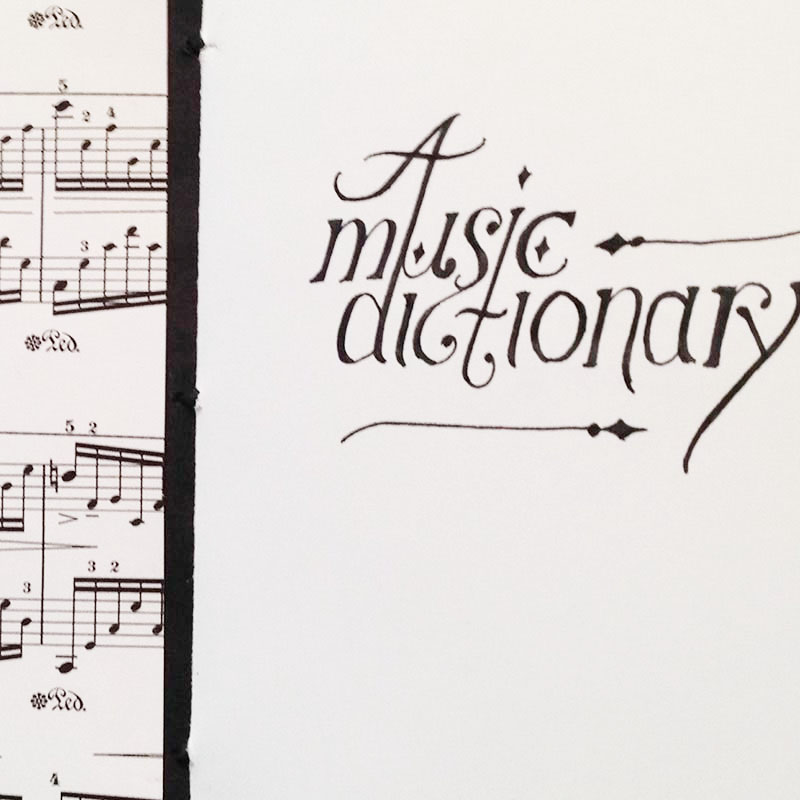 Ped.
5
2 4
3
Ped.
5 2
3 2
3
Ped.
4
A
music
dictionary